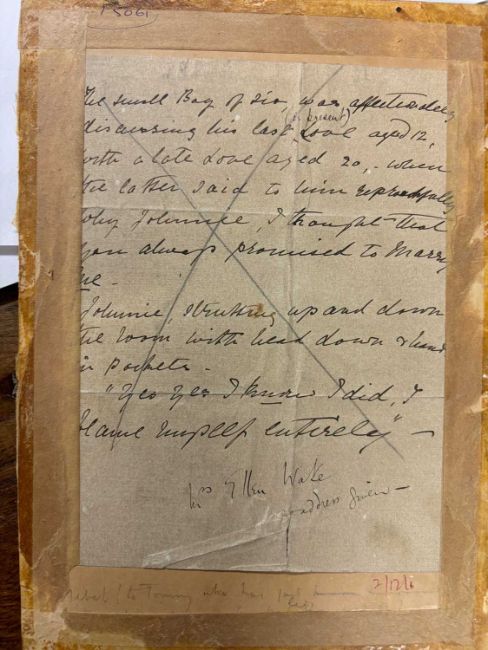 15061
The small Boy of six, was affectedly
(or present)
discussing his last Love aged 12,
with a late Love aged 20, - when
the latter said to him reproachfully
why Johnnie, I thought that
you always promised to Marry
me -
Johnnie, strutting up and down
the room with head down & hands
in pockets -
"Yes Yes I know I did, I
blame myself entirely" -
Mrs Ellen Wake
no address given -
2/12/6
to Tommy who has just